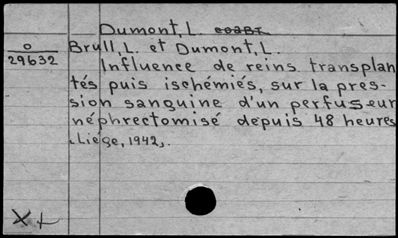 Dumont, L. coaBT.
o
29632
Brull, L. et Dumont, L.
Influence de reins transplan
tés puis ischémiés, sur la pres-
sion sanguine d'un perfuseur
néphrectomisé depuis 48 heures
Liége, 1942.